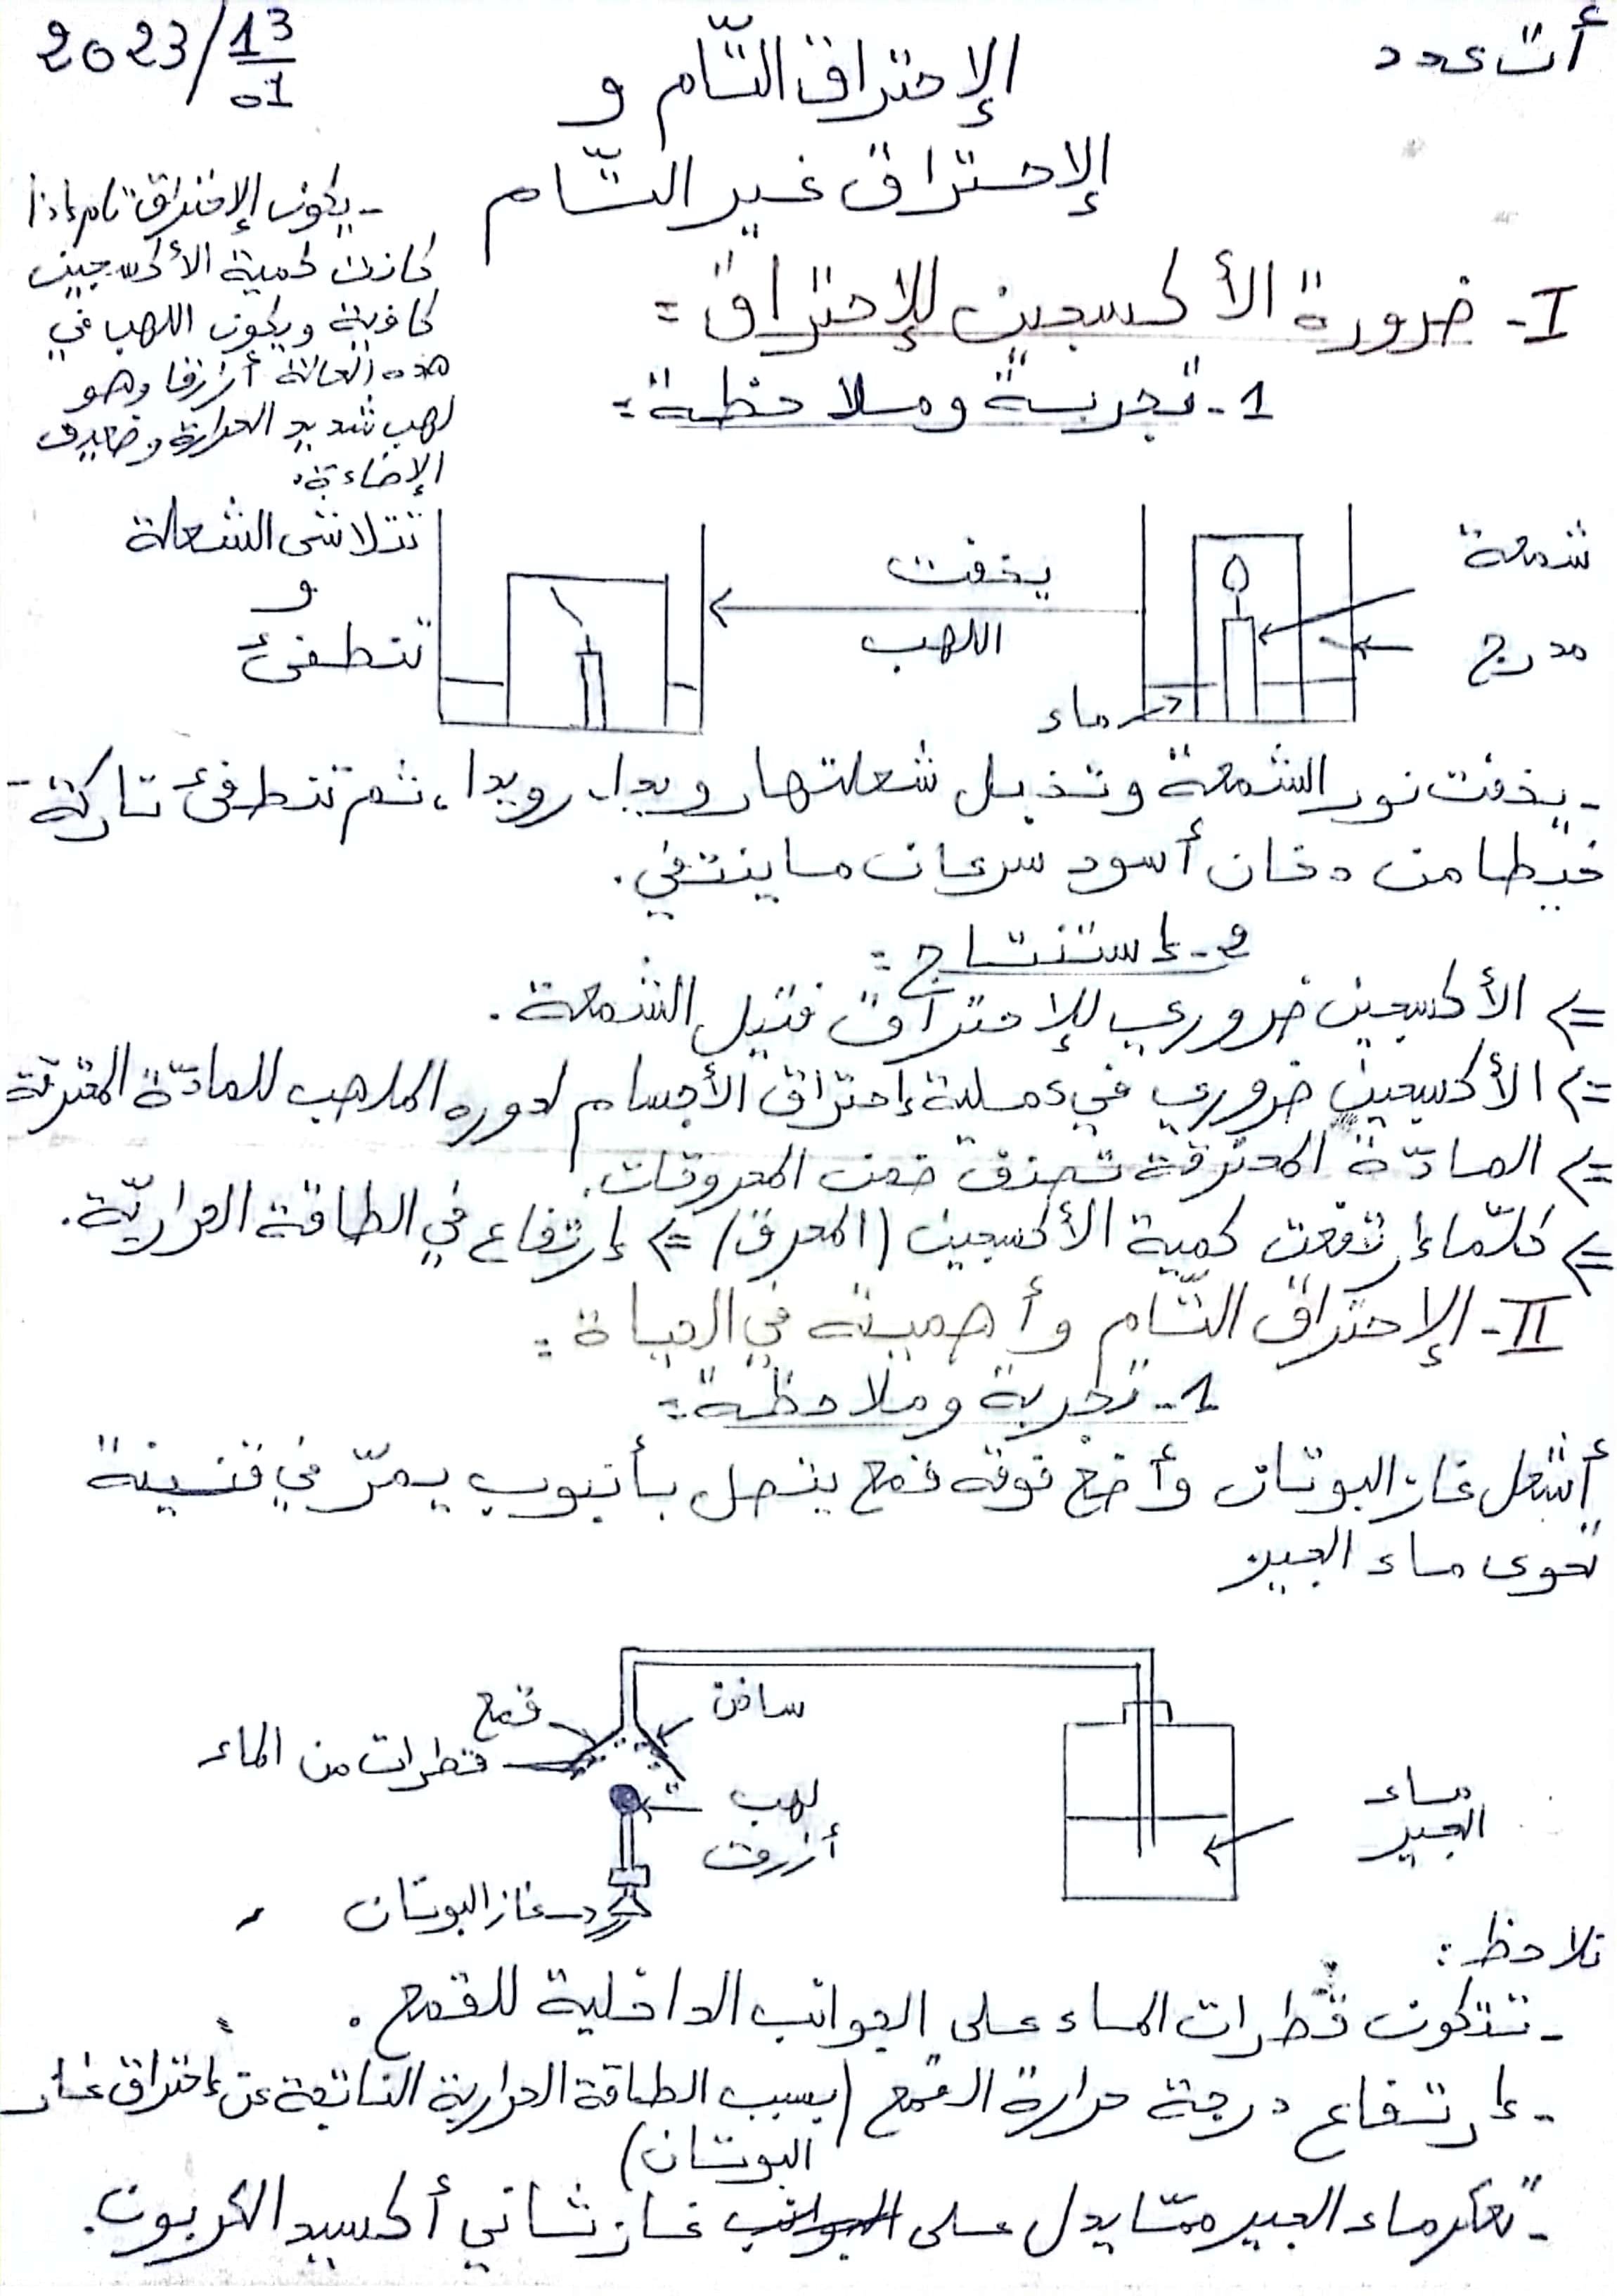 أت عدد
2023/13
01
الإحتراق التّام و
الإحتراق غير التّام
- يكون الإحتراق تام إذا
كانت كمية الأكسجين
كافية ويكون اللهب في
هذه الحالة أزرقا وهو
لهب شديد الحرارة وضعيف
الإضاءة.
I- ضرورة الأكسجين للإحتراق:
1- تجربة وملاحظة:
شمعة
مدرج
ماء
يخفت
اللهب
تتلاشى الشعلة
و
تنطفئ
- يخفت نور الشمعة وتذبل شعلتها رويدا، رويدا، ثم تنطفئ تاركة
خيطا من دخان أسود سرعان ما ينتفي.
2- إستنتاج:
=> الأكسجين ضروري للإحتراق فتيل الشمعة.
=> الأكسجين ضروري في عملية إحتراق الأجسام لدوره الملهب للمادّة المحترقة
=> المادّة المحترقة تصنف ضمن المحروقات.
=> كلّما إرتفعت كمية الأكسجين (المحرق) => إرتفاع في الطاقة الحراريّة.
II- الإحتراق التّام وأهميته في الحياة:
1- تجربة وملاحظة:
أشعل غاز البوتان وأضع فوقه قمع يتصل بأنبوب يمرّ في قنينة
تحوى ماء الجير
قمع
ساخن
قطرات من الماء
لهب
أزرق
غاز البوتان
ماء
الجير
نلاحظ:
- تتكون قطرات الماء على الجوانب الداخلية للقمع.
- إرتفاع درجة حرارة القمع (بسبب الطاقة الحرارية الناتجة عن إحتراق غاز
البوتان)
- تعكر ماء الجير ممّا يدل على الجوانب غاز ثاني أكسيد الكربون.